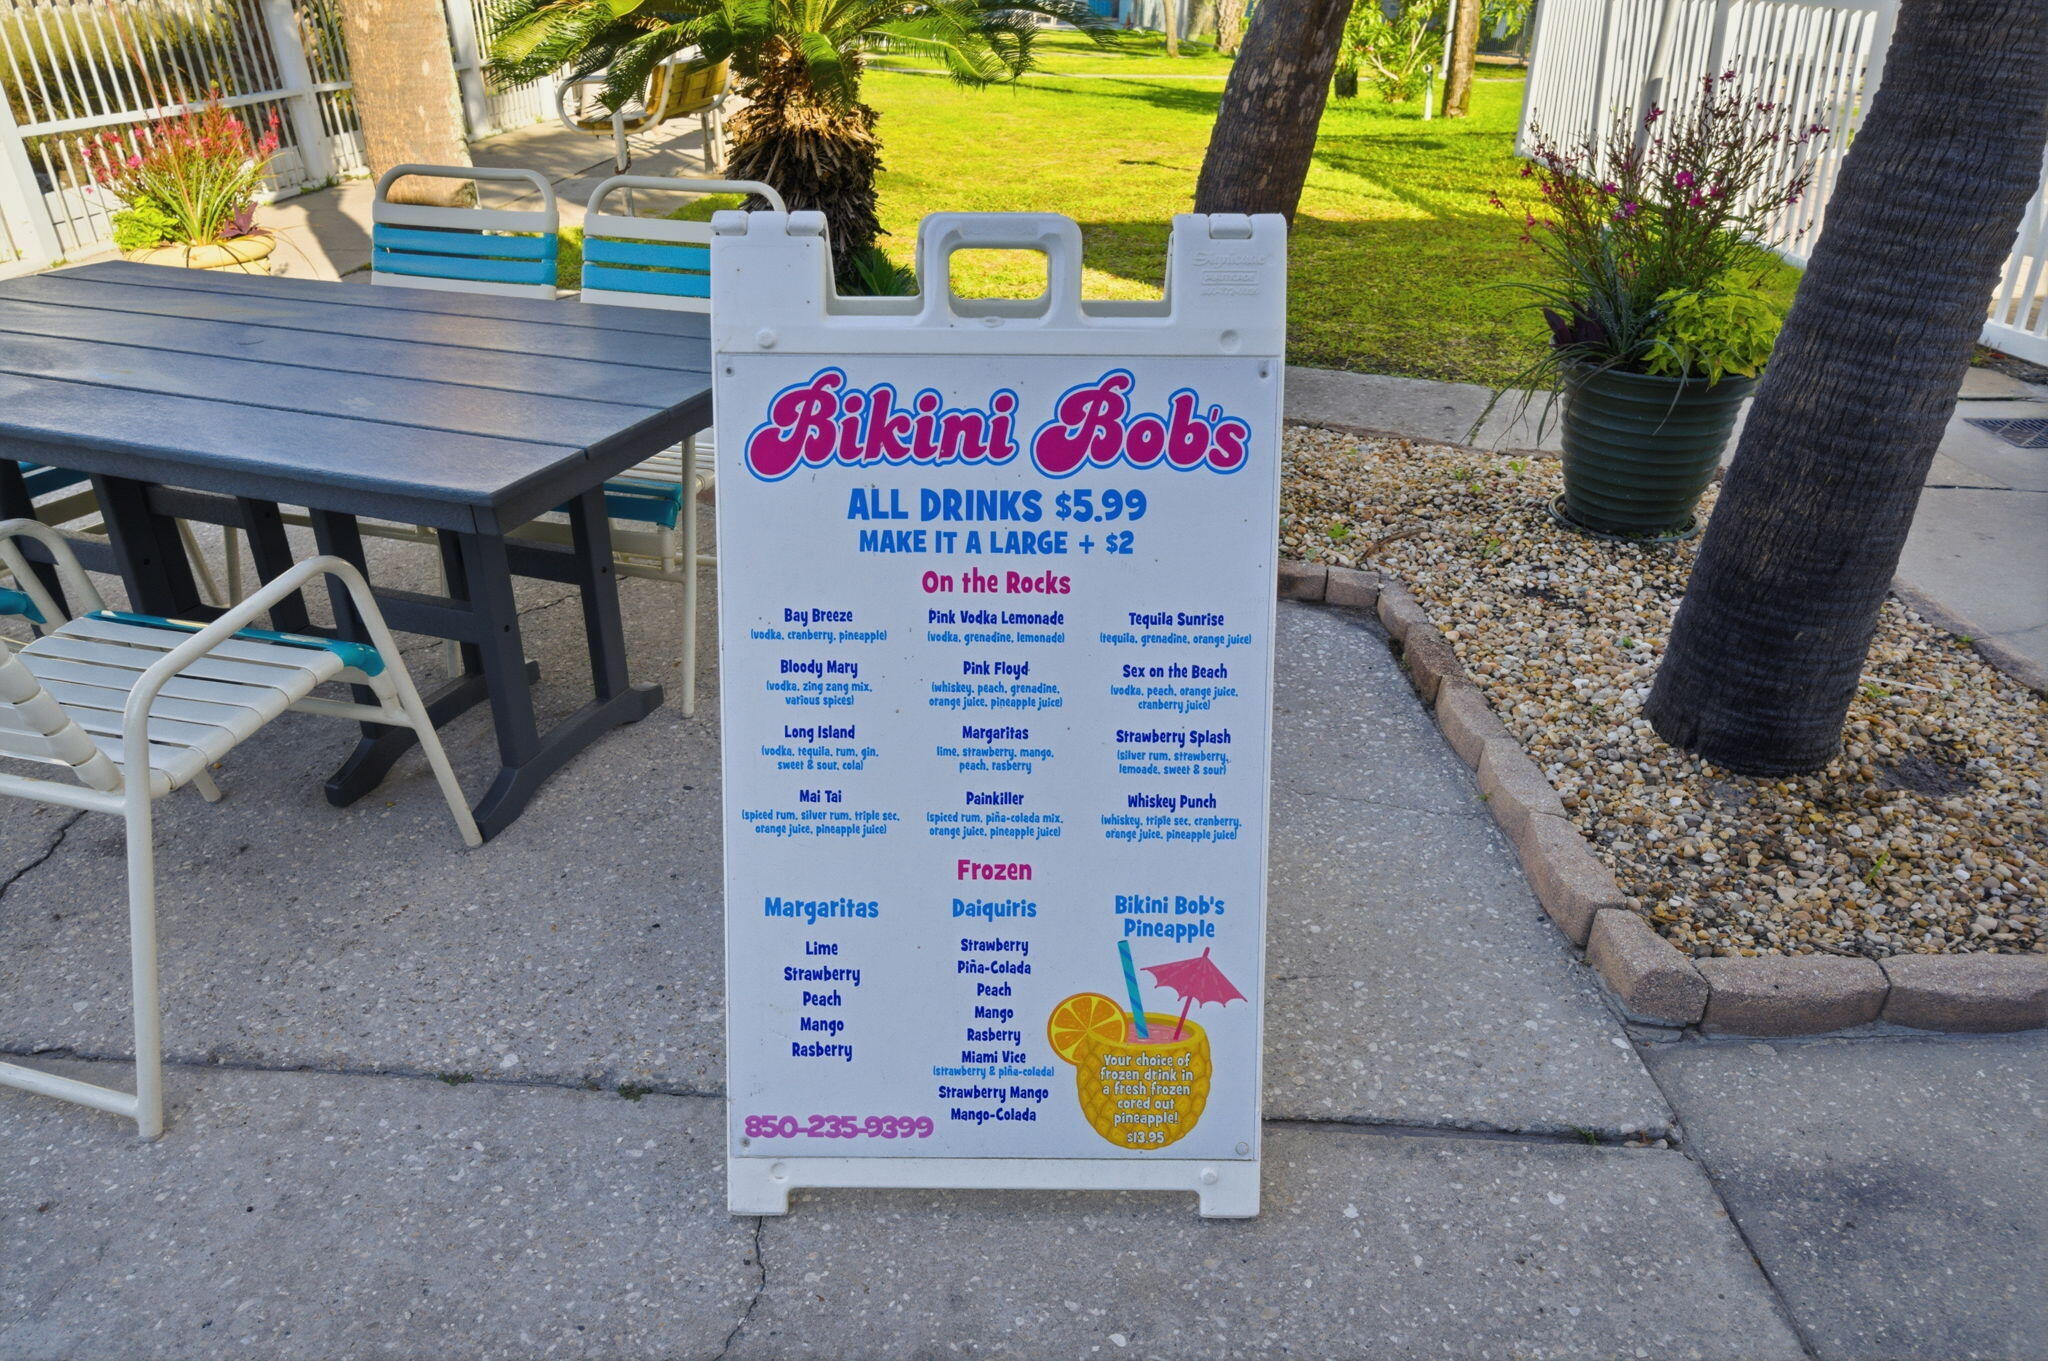 Bikini Bob's
ALL DRINKS $5.99
MAKE IT A LARGE + $2
On the Rocks
Bay Breeze
(vodka, cranberry, pineapple)
Bloody Mary
(vodka, zing zang mix,
various spices)
Long Island
(vodka, tequila, rum, gin,
sweet & sour, cola)
Mai Tai
(spiced rum, silver rum, triple sec,
orange juice, pineapple juice)
Pink Vodka Lemonade
(vodka, grenadine, lemonade)
Pink Floyd
(whiskey, peach, grenadine,
orange juice, pineapple juice)
Margaritas
lime, strawberry, mango,
peach, rasberry
Painkiller
(spiced rum, piña-colada mix,
orange juice, pineapple juice)
Tequila Sunrise
(tequila, grenadine, orange juice)
Sex on the Beach
(vodka, peach, orange juice,
cranberry juice)
Strawberry Splash
(silver rum, strawberry,
lemoade, sweet & sour)
Whiskey Punch
(whiskey, triple sec, cranberry,
orange juice, pineapple juice)
Frozen
Margaritas
Lime
Strawberry
Peach
Mango
Rasberry
Daiquiris
Strawberry
Piña-Colada
Peach
Mango
Rasberry
Miami Vice
(strawberry & piña-colada)
Strawberry Mango
Mango-Colada
Bikini Bob's
Pineapple
Your choice of
frozen drink in
a fresh frozen
cored out
pineapple!
$13.95
850-235-9399